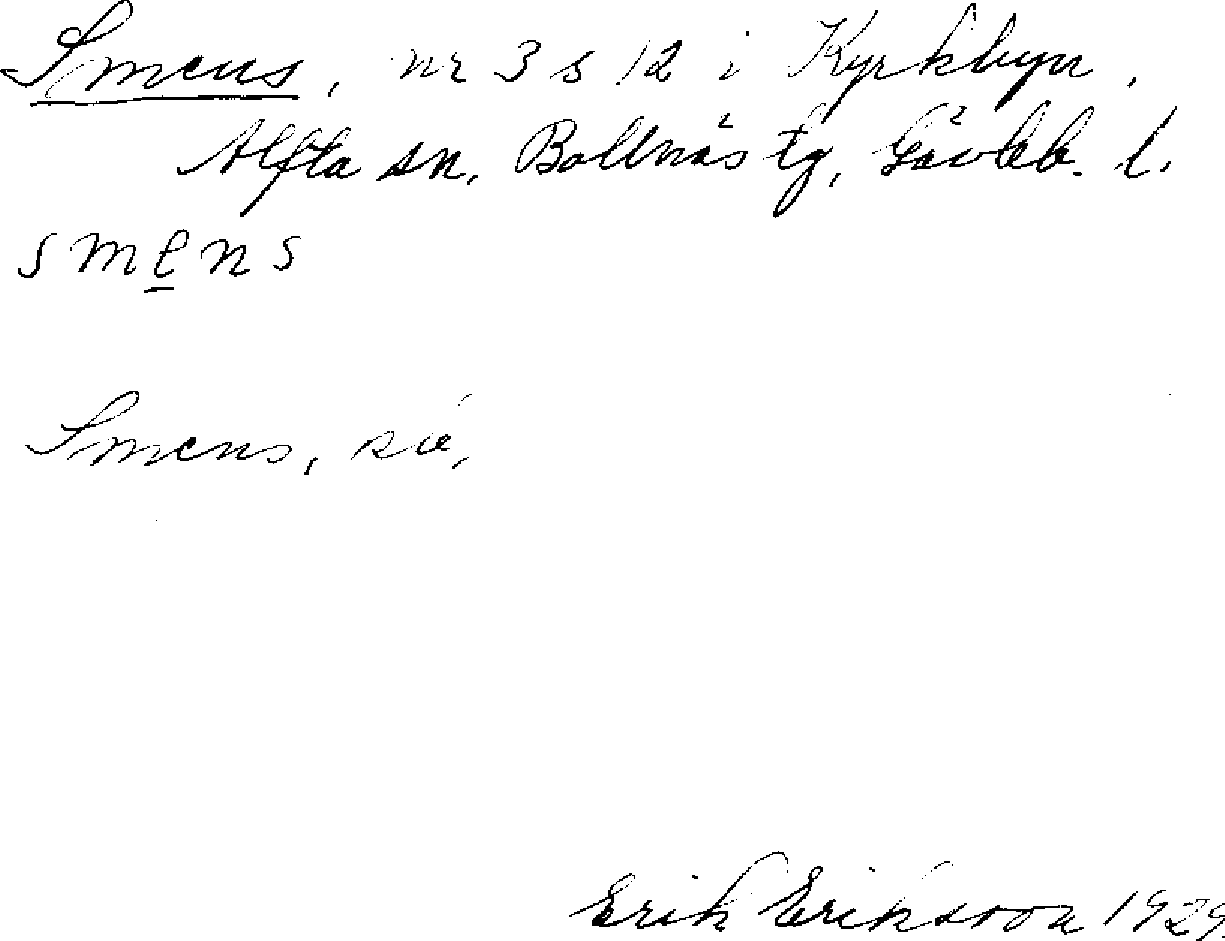 Smens, nr 3 s 12 i Kyrkbyn,
Alfta sn, Bollnäs tg, Gävleb. l.
smens
Smens, so,
Erik Eriksson 1929.